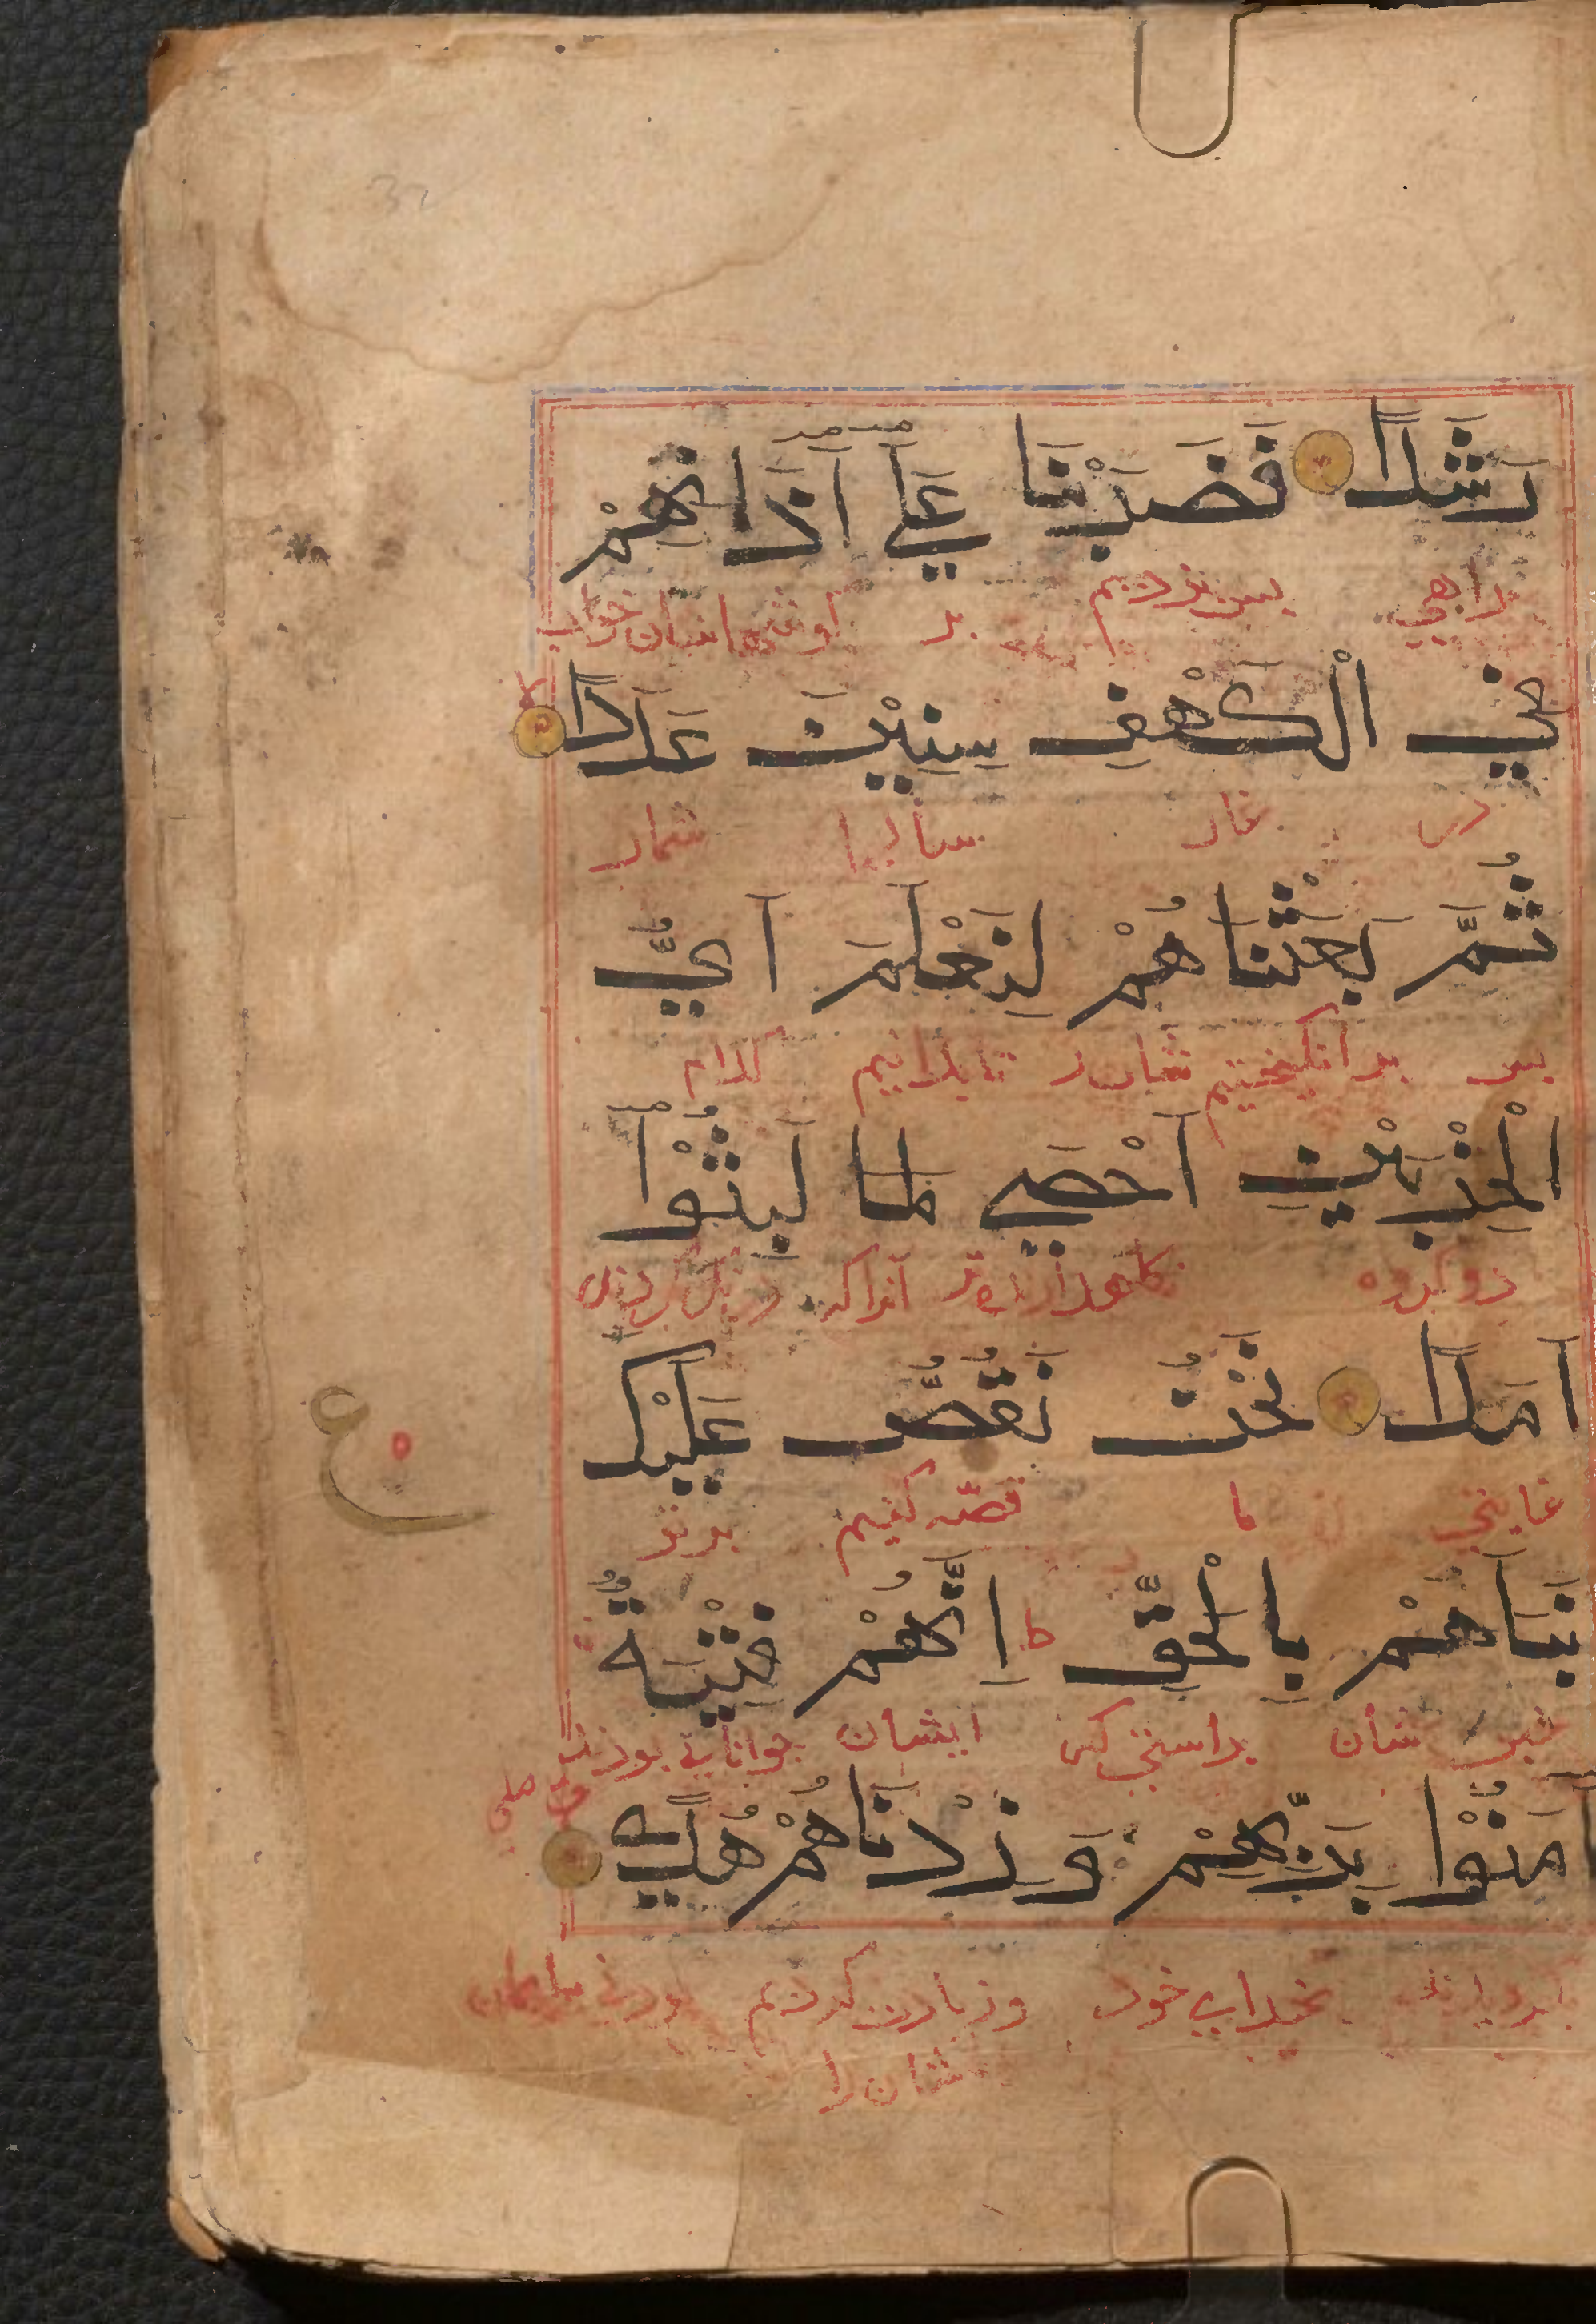 رَشَدًا فَضَرَبْنَا عَلَي آذَانِهِمْ
راهي پس بزديم بر كوشهاشان خواب
فِي الْكَهْفِ سِنِيْنَ عَدَدًا
در غار سالها شمار
ثُمَّ بَعَثْنَاهُمْ لِنَعْلَمَ اَيُّ
پس بر انكيختيم شان را تا بدانيم كدام
الْحِزْبَيْنِ اَحْصَي لِمَا لَبِثُوْا
دو كروه آنرا كه درنك كردند
اَمَدًا نَحْنُ نَقُصُّ عَلَيْكَ
غايتي ما قصه كنيم بر تو
ع
نَبَاَهُمْ بِالْحَقِّ اِنَّهُمْ فِتْيَةٌ
ط
خبر شان براستي كه ايشان جواناني بودند
آمَنُوْا بِرَبِّهِمْ وَزِدْنَاهُمْ هُدًي
بخداي خود و زيادت كرديم
شان را